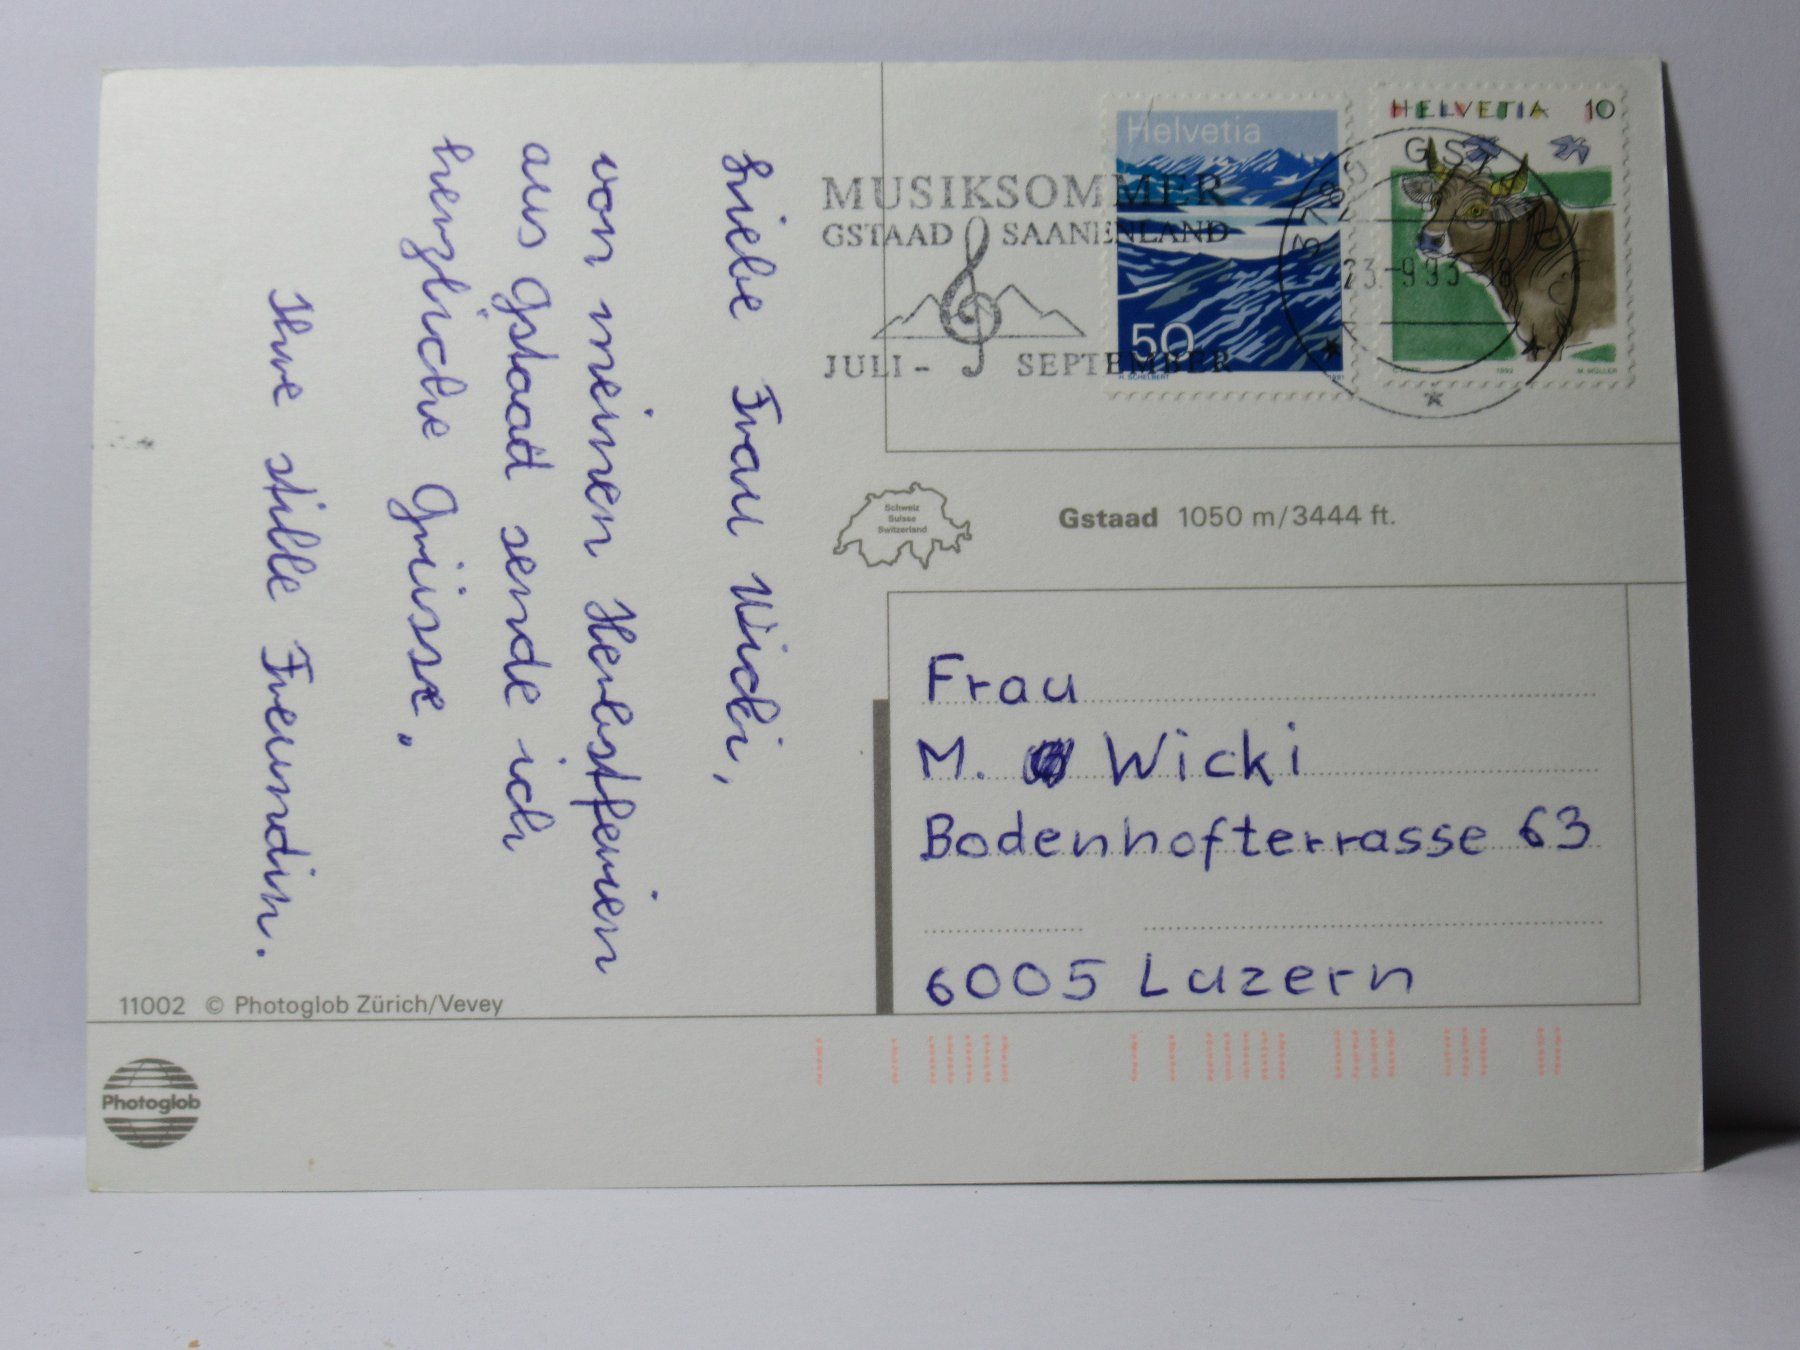 Liebe Frau Wicki,
von meinen Herbstferien
aus Gstaad sende ich
herzliche Grüsse,
Ihre stille Freundin.
MUSIKSOMMER
GSTAAD SAANENLAND
JULI - SEPTEMBER
Helvetia
50
H. SCHELBERT 1991
HELVETIA 10
1992 M. MÜLLER
3780 GST
23.-9.93-18
Schweiz
Suisse
Switzerland
Gstaad 1050 m/3444 ft.
Frau
M. Wicki
Bodenhofterrasse 63
6005 Luzern
11002 © Photoglob Zürich/Vevey
Photoglob